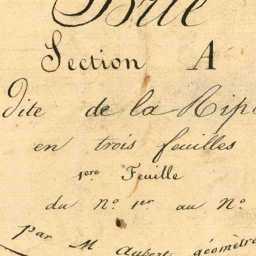 Brie
Section A
dite de la Rip
en trois feuilles
1ère Feuille
du N° 1er au N°
Par M Aubert géomètre